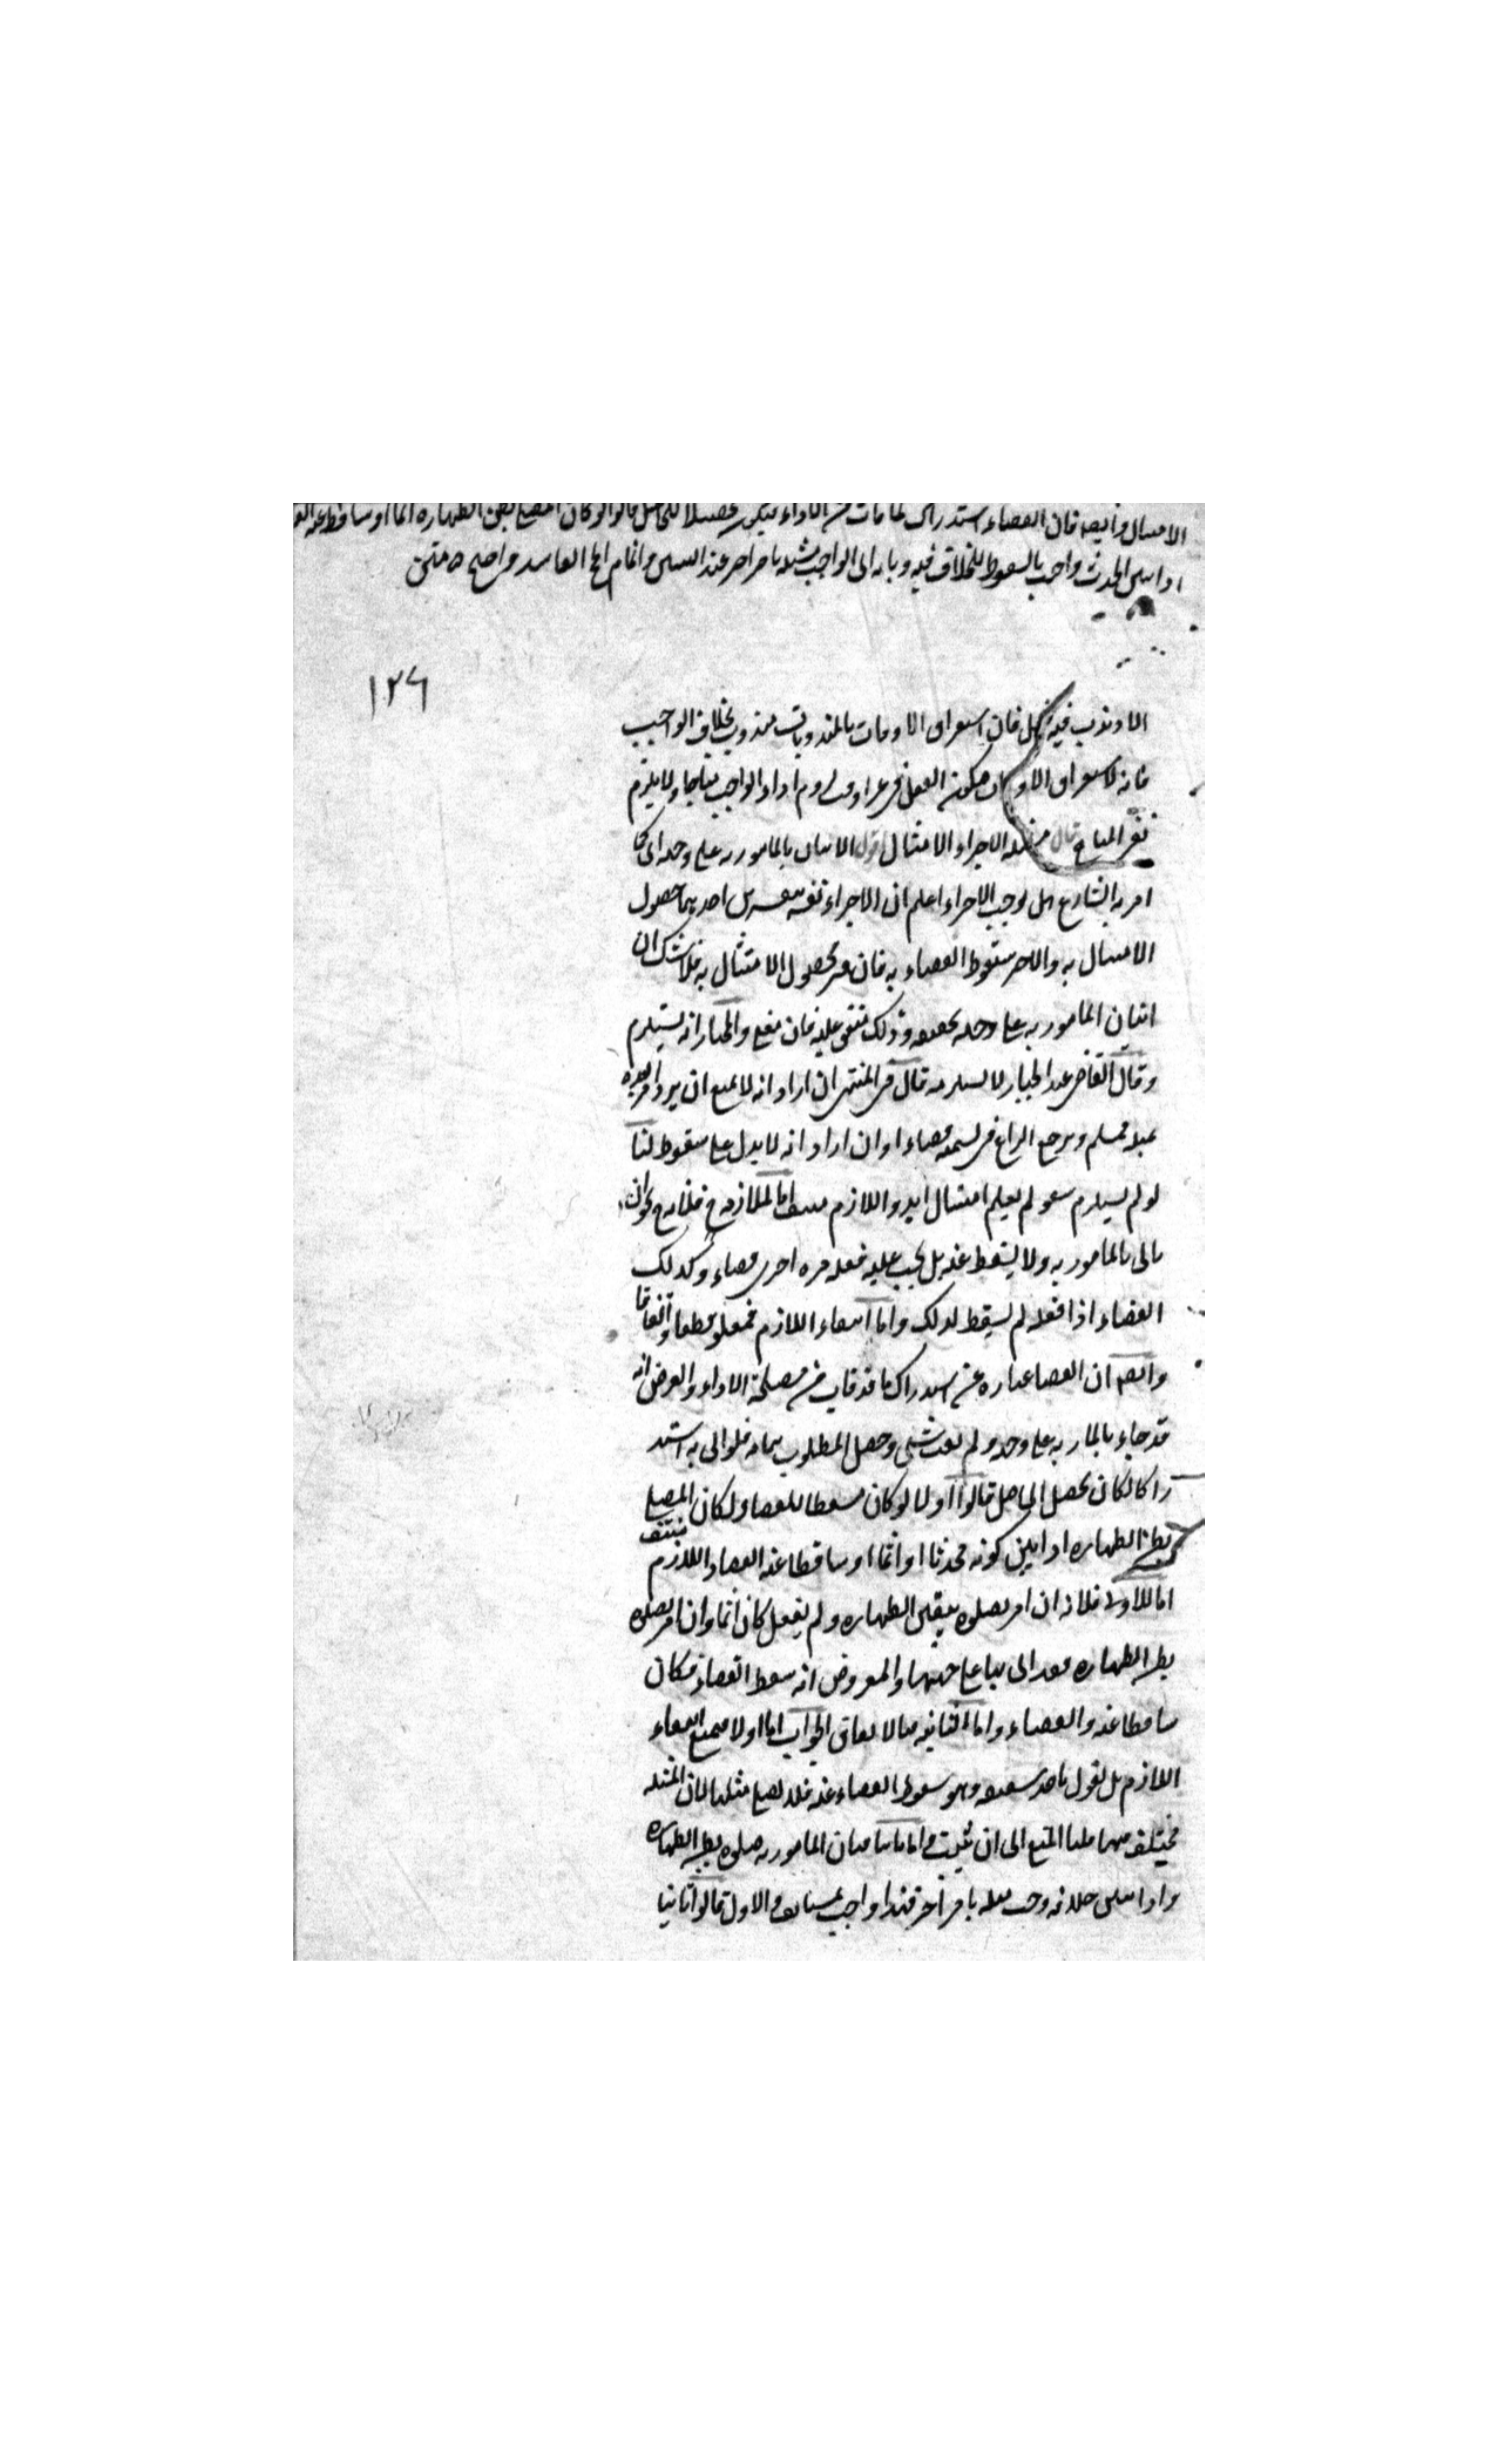 الامتثال وأيضا فان القضاء استدراك لما فات من الاداء فيكون تحصيلا للحاصل قالوا لو كان المصلي بظن الطهارة آثما او ساقطا عنه
اذا تبين الحدث واجيب بالسقوط للخلاف فيه وبانه اتى الواجب مثله بامر اخر عند التبين واتمام الحج الفاسد واضح ه متن
١٢٦
الا وندب فيه فعل فان استغراق الاوقات بالمندوبات مندوب بخلاف الواجب
فانه لاستغراق الاوقات فيكون الفعل في غير اوقات لزوم اداء الواجب مباحا ولا يلزم
نفي المباح قال مسئلة الاجزاء الامتثال اقول الاتيان بالمامور به على وجهه اى كما
امر به الشارع هل يوجب الاجزاء اعلم ان الاجزاء تفسر بتفسيرين احدهما حصول
الامتثال به والاخر سقوط القضاء به فان فسر بحصول الامتثال به فلا شك ان
اتيان المامور به على وجهه يحققه وذلك متفق عليه فان فسر والمختار انه يستلزم
وقال القاضي عبد الجبار لا يستلزمه قال في المنتهى ان اراد انه لا يمتنع ان يرد امر بعده
بمثله فمسلم ويرجع النزاع في تسميته قضاء او ان اراد انه لا يدل على سقوط لنا
لو لم يستلزم سقوطه لم يعلم امتثال ابدا واللازم منتف اما الملازمة فلانه ح يجوز ان
ياتي بالمامور به ولا يسقط عنه بل يجب عليه فعله مرة اخرى قضاء وكذلك
القضاء اذا فعله لم يسقط لذلك واما انتفاء اللازم فمعلوم قطعا واتفاقا
وايضا ان القضا عبارة عن استدراك ما قد فات من مصلحة الاداء والفرض انه
قد جاء بالمامور به على وجهه ولم يفت شئ وحصل المطلوب بتمامه فلو اتى به استد
راكا لكان تحصيل الحاصل قالوا اولا لو كان مسقطا للقضاء لكان المصلي
بظن الطهارة اذا تبين كونه محدثا اما آثما او ساقطا عنه القضاء واللازم منتف
اما الاولى فلانه ان امر بصلوة بيقين الطهارة ولم يفعل كان آثما وان امر بصلوة
بظن الطهارة فقد اتى بها على وجهها والمفروض انه يسقط القضاء فكان
ساقطا عنه القضاء واما الثانية فبالاتفاق الجواب اما اولا فبمنع انتفاء
اللازم بل نقول باحد شقيه وهو سقوط القضاء عنه فلا يصلي مثلها لان المسئلة
مختلف فيها فلنا المنع الى ان يثبت واما ثانيا فبان المامور به صلوة بظن الطهارة
واذا تبين خلافه وجب مثله بامر آخر فهذا واجب مستانف والاول قالوا ثانيا